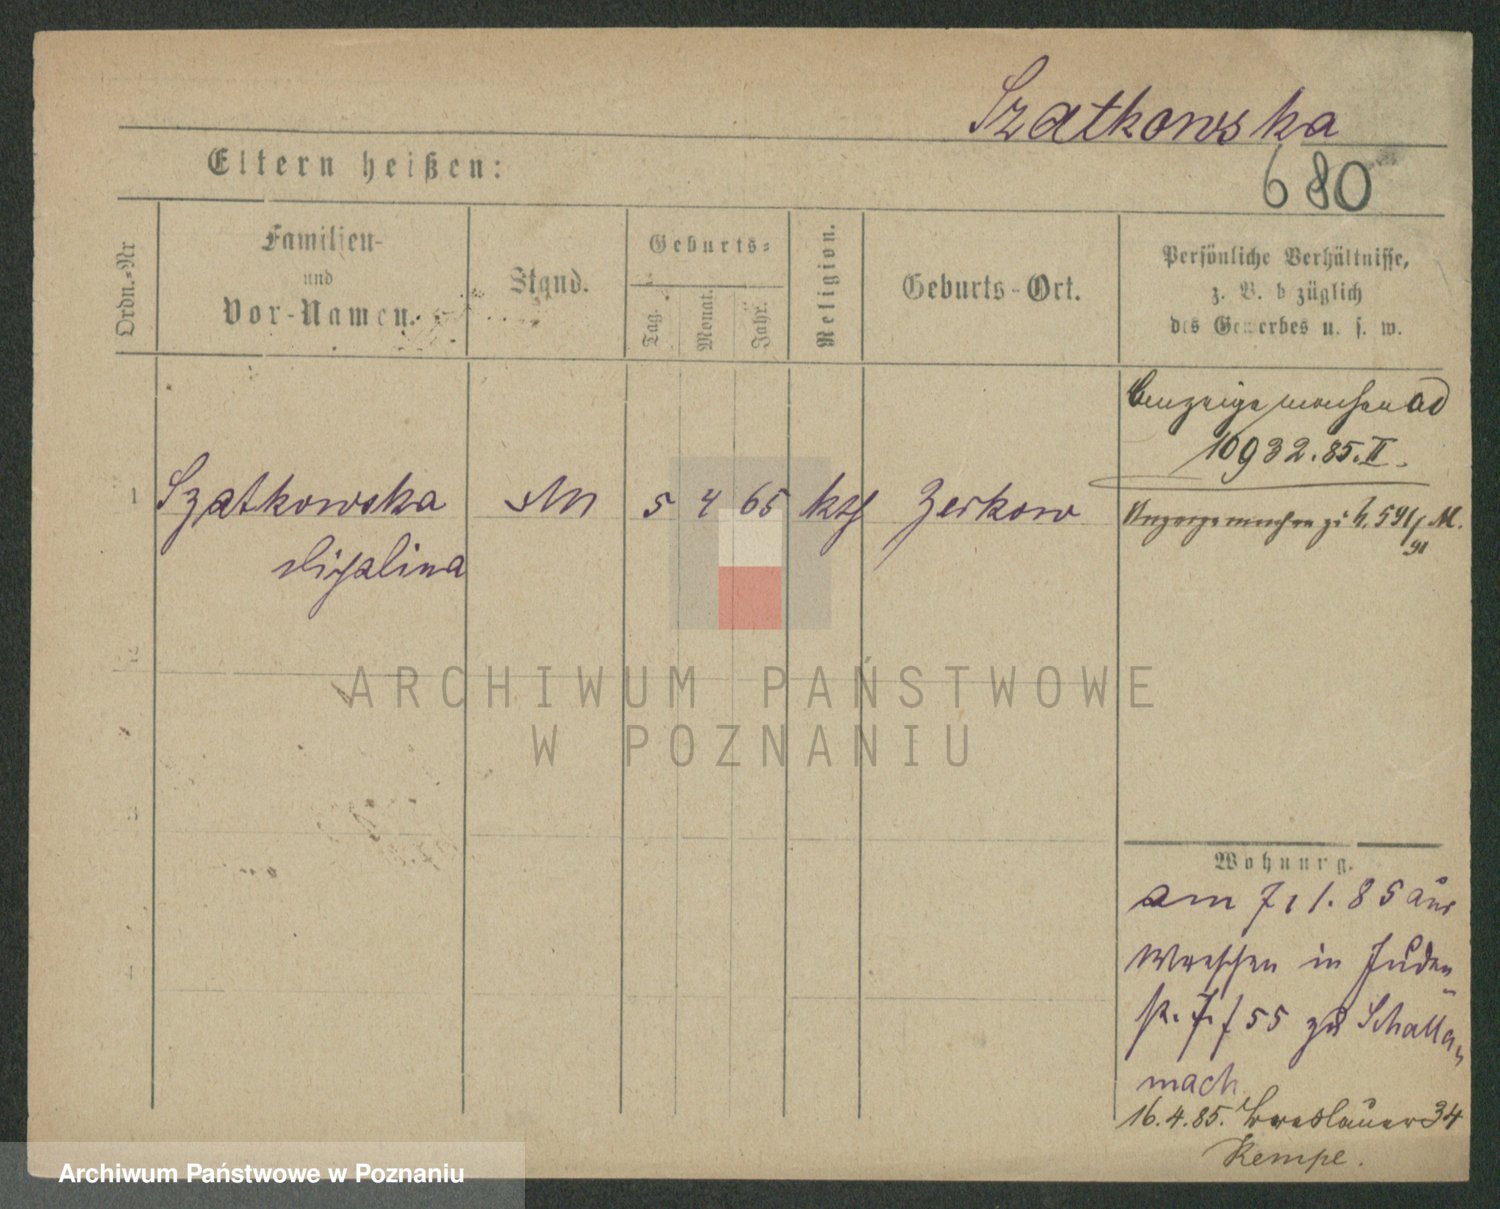 Szatkowska
Eltern heißen:
680
Ordn.-Nr
Familien-
und
Vor-Namen.
Stand.
Geburts-
Tag.
Monat.
Jahr.
Religion.
Geburts-Ort.
Persönliche Verhältnisse,
z. B. b züglich
des Gewerbes u. s. w.
ad
10932.85.II.
1 Szatkowska 5 4 65 kth Zerkow
2
3
4
Wohnung.
am 7/1.85 aus
Wreschen in Juden
str. 7/55 zu Schalla
mach
16.4.85. Breslauer 34
Kempe.
ARCHIWUM PAŃSTWOWE
W POZNANIU
Archiwum Państwowe w Poznaniu